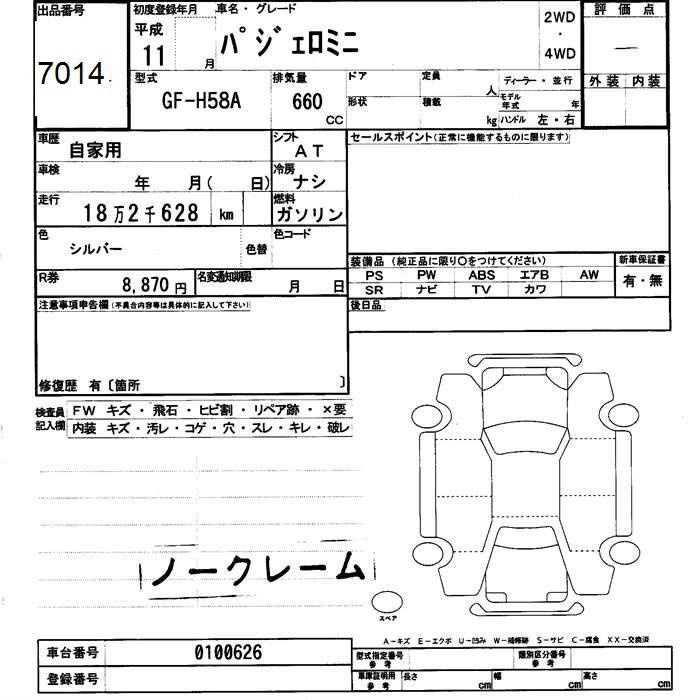 出品番号
7014
初度登録年月
平成
11 月
車名・グレード
パジェロミニ
2WD
・
4WD
評価点
―
外装 内装
型式
GF-H58A
排気量
660
CC
ドア
形状
定員
人
積載
kg
ディーラー・並行
モデル年式 年
ハンドル 左・右
車歴
自家用
シフト
AT
セールスポイント(正常に機能するものに限ります)
車検
年 月( 日)
冷房
ナシ
走行
18万2千628 km
燃料
ガソリン
色
シルバー
色替
色コード
R券
8,870円
名変通知期限
月 日
装備品 (純正品に限り○をつけてください)
PS PW ABS エアB AW
SR ナビ TV カワ
新車保証書
有・無
後日品
注意事項申告欄(不具合内容等は具体的に記入して下さい)
修復歴 有〔箇所 〕
検査員記入欄
FW キズ・飛石・ヒビ割・リペア跡・×要
内装 キズ・汚レ・コゲ・穴・スレ・キレ・破レ
ノークレーム
スペア
A-キズ E-エクボ U-凹み W-補修跡 S-サビ C-腐食 XX-交換済
車台番号
0100626
登録番号
型式指定番号
参考
類別区分番号
参考
車庫証明用
参考
長さ cm
幅 cm
高さ cm